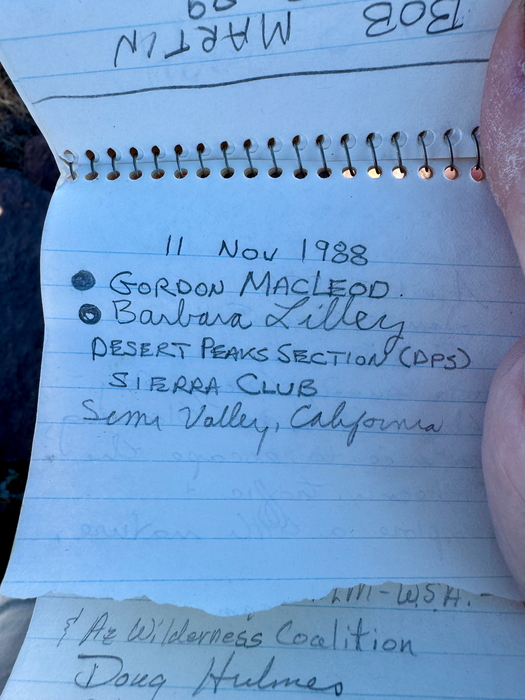 BOB
MARTIN
11 Nov 1988
GORDON MACLEOD.
Barbara Lilley
DESERT PEAKS SECTION (DPS)
SIERRA CLUB
Simi Valley, California
LM-W.S.A.-
& Az Wilderness Coalition
Doug Hulmes